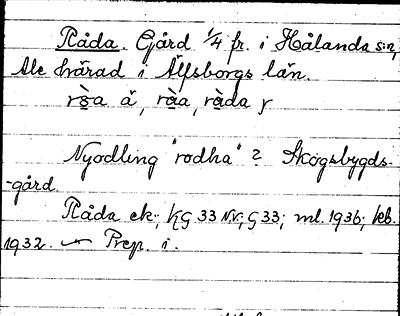 Råda. Gård 1/4 fr. i Hålanda sn,
Ale härad i Älfsborgs län.
Nyodling "rodha" ? Skogsbygds-
-gård.
Råda ek.; KG 33 NV, G 33; ml. 1936; keb.
1932. — Prep. i.